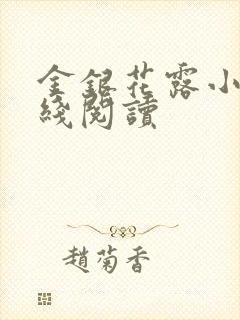 金銀花露小
綫閱讀
趙菊香